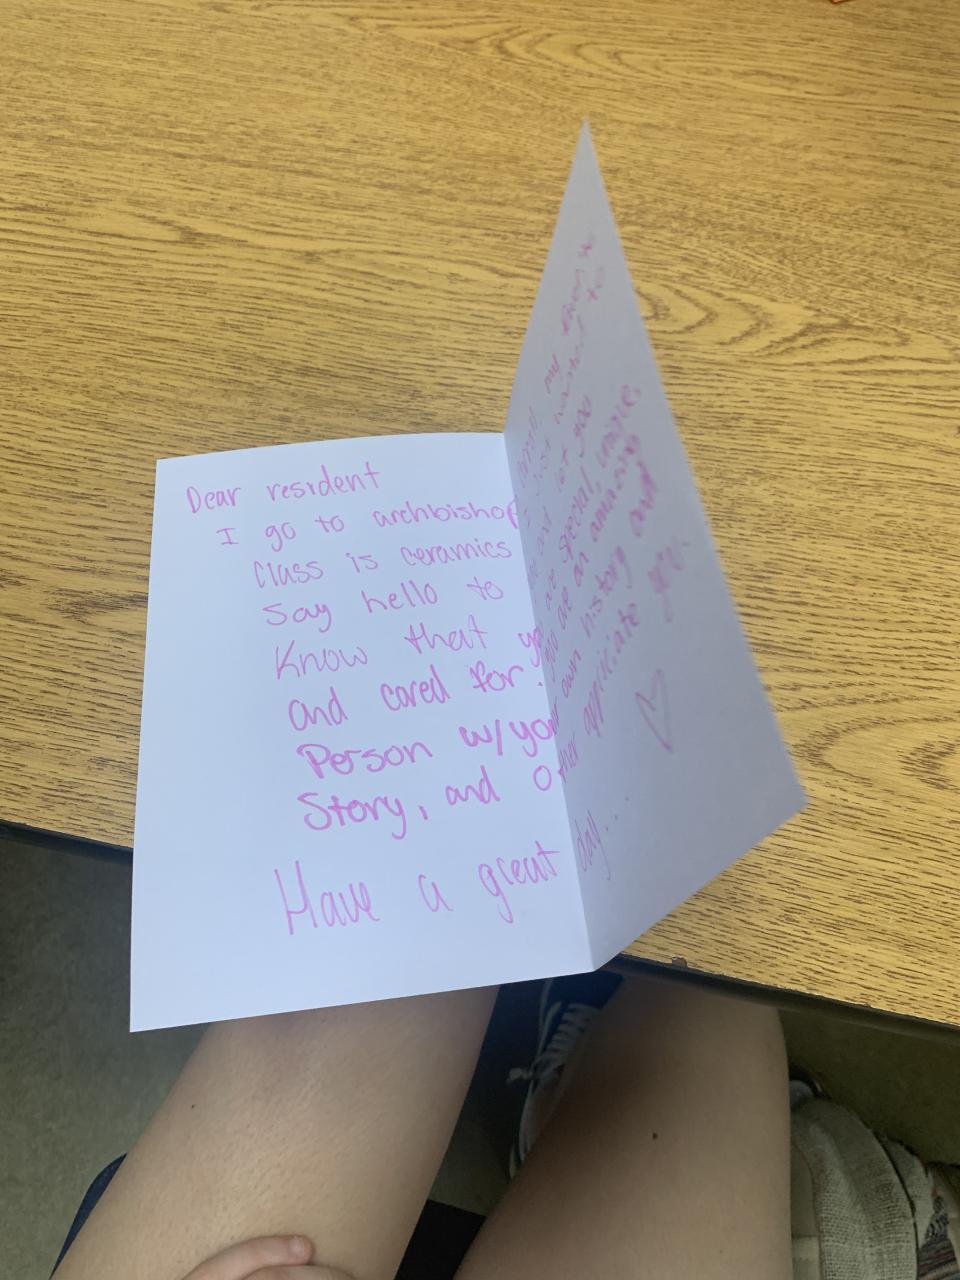 Dear resident
I go to archbishop my
class is ceramics I just wanted to
Say hello to and let you
Know that you are special, unique
and cared for. You are an amazing
Person w/your own history and
Story, and other appriciate you.
Have a great day...